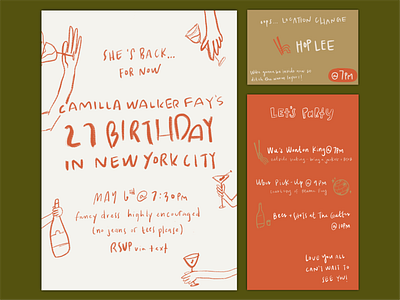 SHE'S BACK...
FOR NOW
CAMILLA WALKER FAY'S
27 BIRTHDAY
IN NEW YORK CITY
MAY 6th @ 7:30pm
fancy dress highly encouraged
(no jeans or tees please)
RSVP via text
oops... LOCATION CHANGE
HOP LEE
@ 7PM
Let's Party
Wu's Wonton King @ 7pm
Uber Pick-Up @ 9pm
Beer + Girls at The Gutter
@ 10pm
LOVE YOU ALL
CAN'T WAIT TO
SEE YOU!